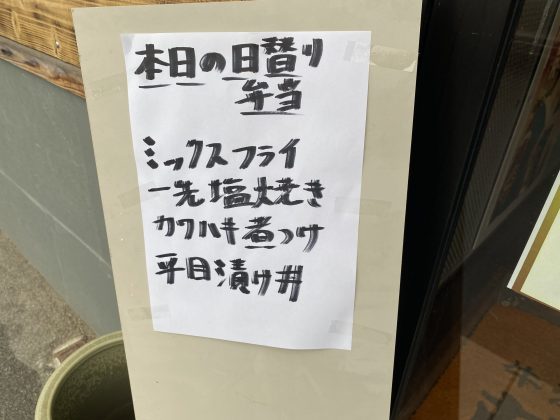 本日の日替り
弁当
ミックスフライ
一先塩焼き
カワハキ煮つけ
平目漬け丼